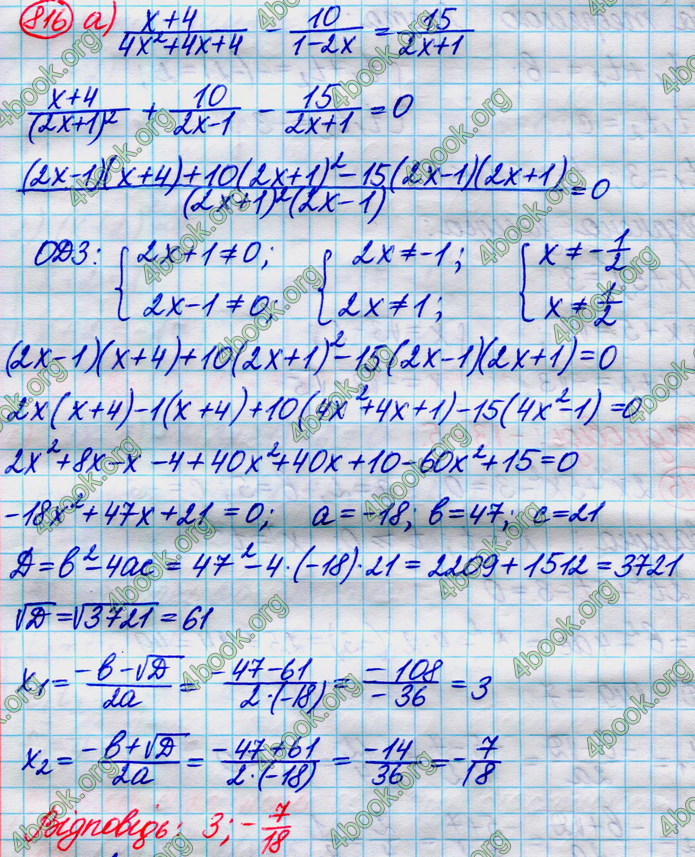 816 а) (x+4)/(4x²+4x+4) - 10/(1-2x) = 15/(2x+1)
(x+4)/(2x+1)² + 10/(2x-1) - 15/(2x+1) = 0
((2x-1)(x+4)+10(2x+1)²-15(2x-1)(2x+1))/((2x+1)²(2x-1)) = 0
ОДЗ: { 2x+1≠0; 2x-1≠0; { 2x≠-1; 2x≠1; { x≠-1/2 x≠1/2
(2x-1)(x+4)+10(2x+1)²-15(2x-1)(2x+1)=0
2x(x+4)-1(x+4)+10(4x²+4x+1)-15(4x²-1)=0
2x²+8x-x-4+40x²+40x+10-60x²+15=0
-18x²+47x+21=0; a=-18; b=47; c=21
Д=b²-4ac=47²-4·(-18)·21=2209+1512=3721
√Д=√3721=61
x₁=(-b-√Д)/(2a)=(-47-61)/(2·(-18))=(-108)/(-36)=3
x₂=(-b+√Д)/(2a)=(-47+61)/(2·(-18))=(-14)/(36)=-7/18
Відповідь: 3; -7/18
4book.org